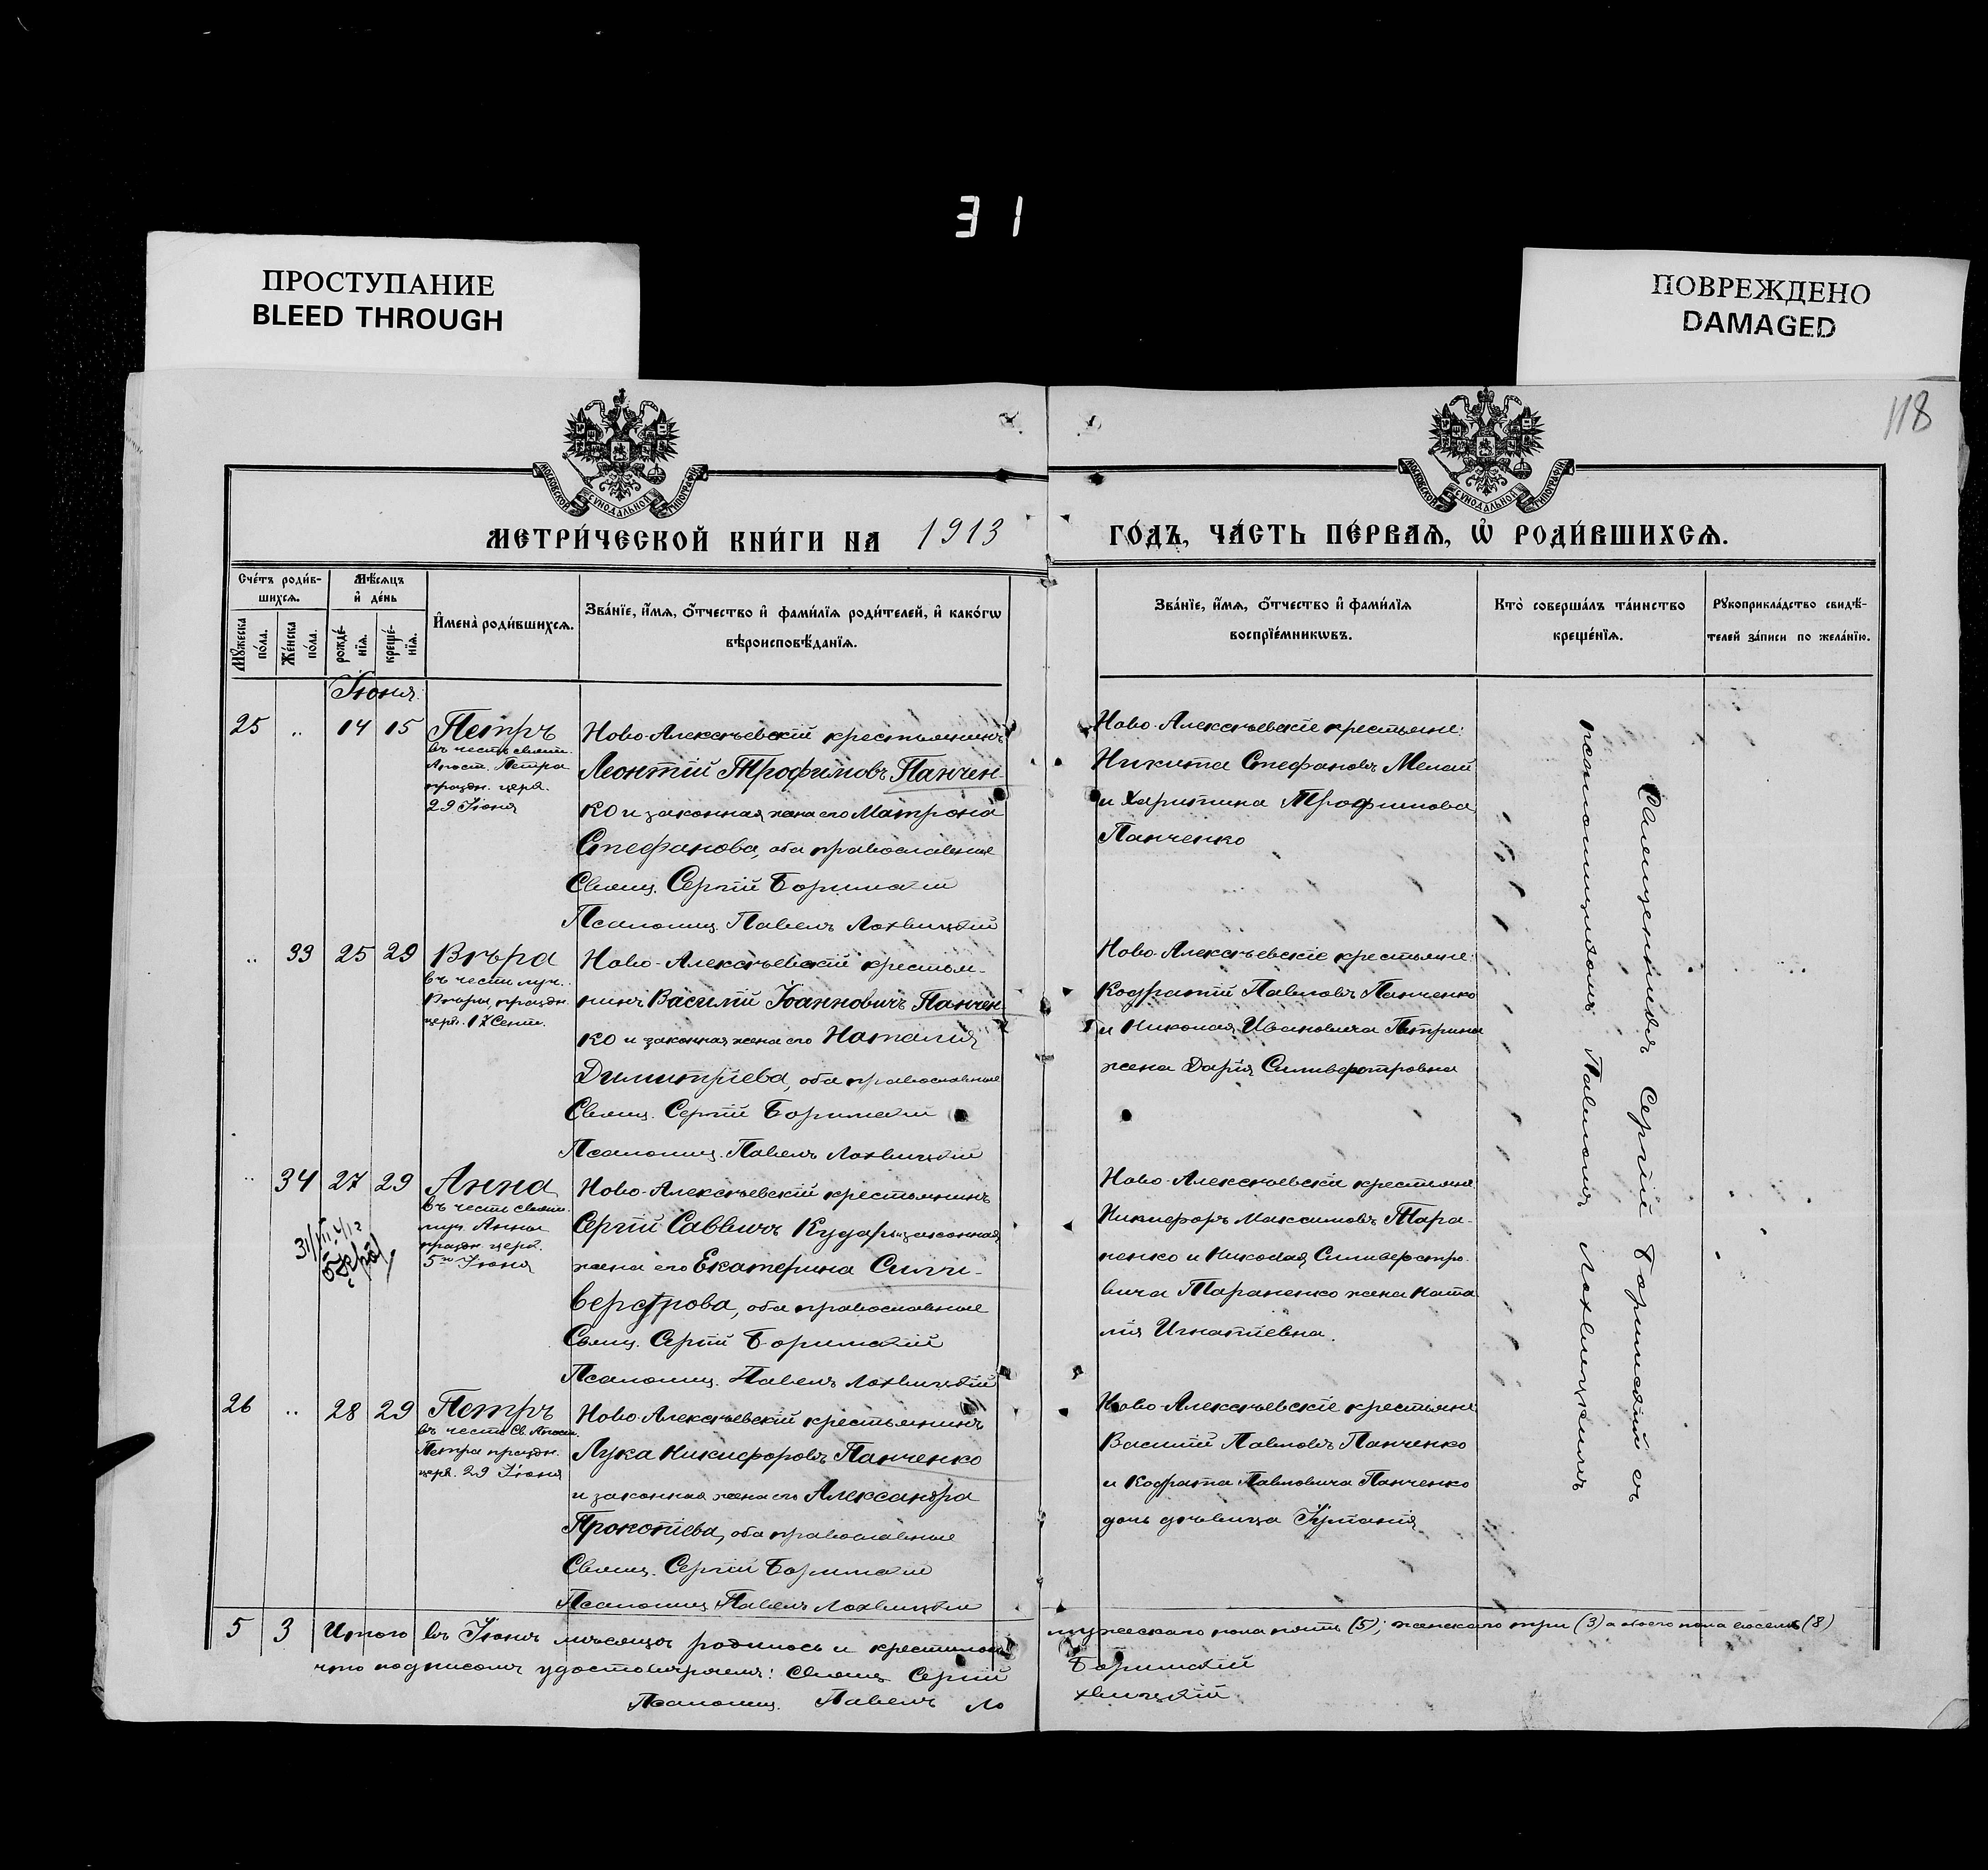 31
ПРОСТУПАНИЕ
BLEED THROUGH
ПОВРЕЖДЕНО
DAMAGED
118
МОСКОВСКОЙ СУНОДАЛЬНОЙ ТИПОГРАФІИ
МОСКОВСКОЙ СУНОДАЛЬНОЙ ТИПОГРАФІИ
МЕТРИ́ЧЕСКОЙ КНИ́ГИ НА 1913
ГО́ДЪ, ЧА́СТЬ ПЕ́РВАѦ, Ѡ҆ РОДИ́ВШИХСѦ.
Сче́тъ роди́в-
шихсѧ.
Мѣ́сѧцъ
и҆ де́нь
Мꙋ́жеска
по́ла.
Же́нска
по́ла.
рожде́-
нїѧ.
креще́-
нїѧ.
И҆мена̀ роди́вшихсѧ.
Зва́нїе, и҆́мѧ, ѻ҆́тчество и҆ фами́лїѧ роди́телей, и҆ како́гѡ
вѣроисповѣ́данїѧ.
Зва́нїе, и҆́мѧ, ѻ҆́тчество и҆ фами́лїѧ
воспрїе́мникѡвъ.
Кто̀ соверша́лъ та́инство
креще́нїѧ.
Рꙋкоприкла́дство свидѣ́-
телей за́писи по жела́нїю.
Іюня
25 .. 14 15 Петръ
въ честь свят.
Апост. Петра
праздн. церк.
29 Іюня
Ново-Алексѣевскій крестьянинъ
Леонтій Трофимовъ Панчен-
ко и законная жена его Матрона
Стефанова, оба православные
Свящ. Сергій Боримскій
Псаломщ. Павелъ Лохвицкій
Ново-Алексѣевскіе крестьяне:
Никита Стефановъ Мелай
и Харитина Трофимова
Панченко
.. 33 25 29 Вѣра
въ честь муч.
Вѣры, праздн.
церк. 17 Сент.
Ново-Алексѣевскій крестья-
нинъ Василій Іоанновичъ Панчен-
ко и законная жена его Наталія
Димитріева, оба православные
Свящ. Сергій Боримскій
Псаломщ. Павелъ Лохвицкій
Ново-Алексѣевскіе крестьяне:
Кодратій Павловъ Панченко
и Николая Ивановича Петрина
жена Дарія Сильверстровна
.. 34 27 29 Анна
въ честь свят.
муч. Анны
праздн. церк.
5го Іюня
Ново-Алексѣевскій крестьянинъ
Сергій Саввичъ Кударь и законная
жена его Екатерина Силь-
верстрова, оба православные
Свящ. Сергій Боримскій
Псаломщ. Павелъ Лохвицкій
Ново-Алексѣевскіе крестьяне
Никифоръ Максимовъ Тара-
ненко и Николая Сильверстро-
вича Тараненко жена Ната-
лія Игнатіевна.
26 .. 28 29 Петръ
въ честь Св. Апост.
Петра праздн.
церк. 29 Іюня
Ново-Алексѣевскій крестьянинъ
Лука Никифоровъ Панченко
и законная жена его Александра
Прокопіева, оба православные
Свящ. Сергій Боримскій
Псаломщ. Павелъ Лохвицкій
Ново-Алексѣевскіе крестьяне
Василій Павловъ Панченко
и Кодрата Павловича Панченко
дочь дѣвица
Священникъ Сергій Боримскій съ
псаломщикомъ Павломъ Лохвицкимъ
5 3 Итого въ Іюнѣ мѣсяцѣ родилось и крестилось
мужескаго пола пять (5); женскаго три (3) а обоего пола восемь (8)
что подписомъ удостовѣряемъ: Свящ. Сергій
Боримскій
Псаломщ. Павелъ Ло
хвицкій